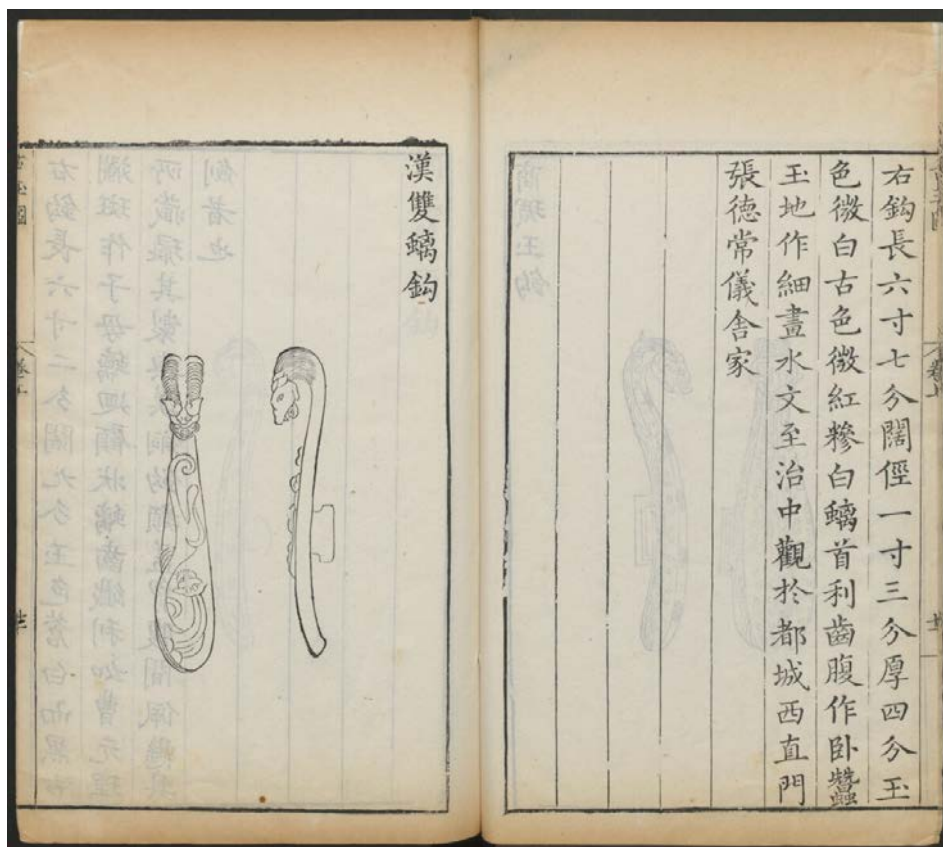 右鈎長六寸七分闊徑一寸三分厚四分玉
色微白古色微紅糝白螭首利齒腹作卧蠶
玉地作細畫水文至治中觀於都城西直門
張徳常儀舎家
漢雙螭鈎
古玉圖